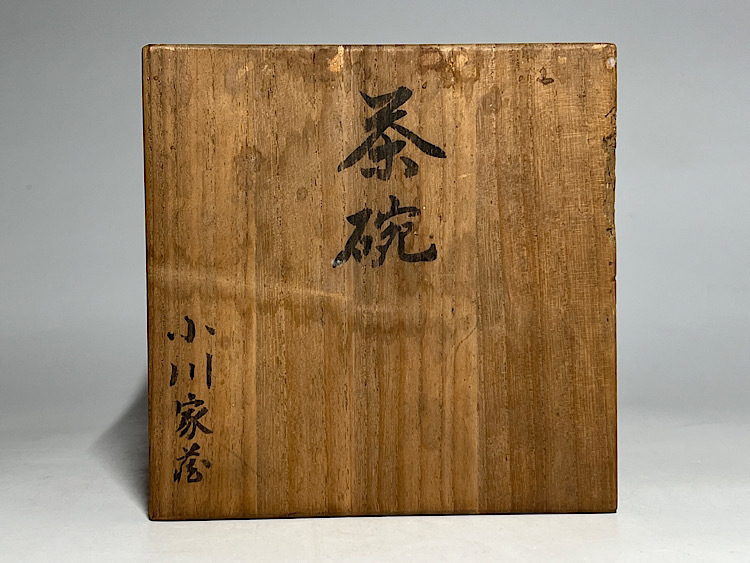 茶碗
小川家蔵